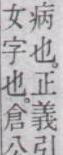 病也。正義
女字也。倉公引